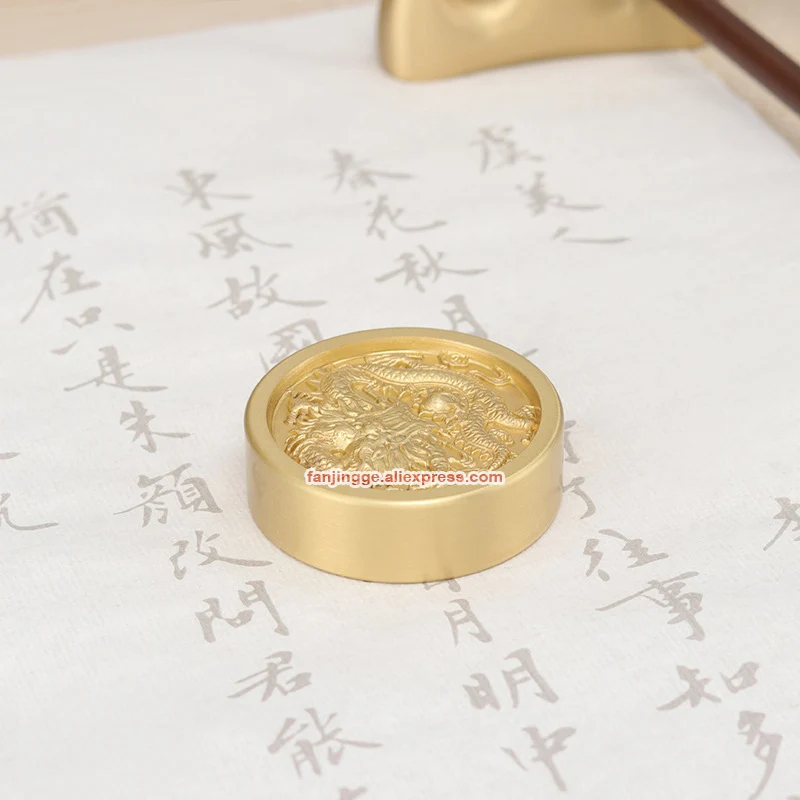 虞美人
春花秋月
了往事知多
東風故國
月明中
猶在只是朱顏改問君能
fanjingge.aliexpress.com